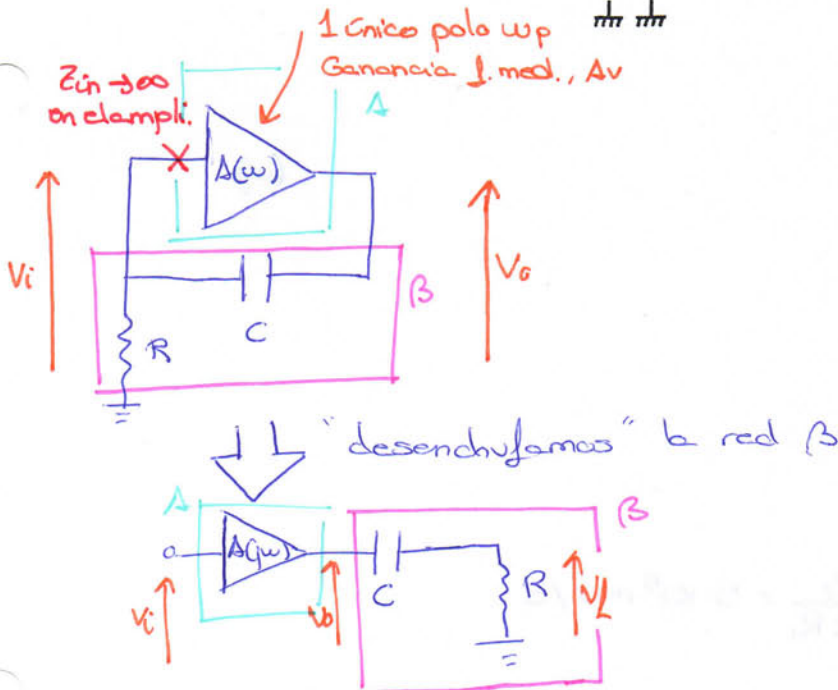 1 único polo ωp
Ganancia f. med., Av
Zin → ∞
en el ampli.
A
A(ω)
Vi
Vo
β
R
C
"desenchufamos" la red β
A
β
A(jω)
C
R
Vi
Vo
Vf